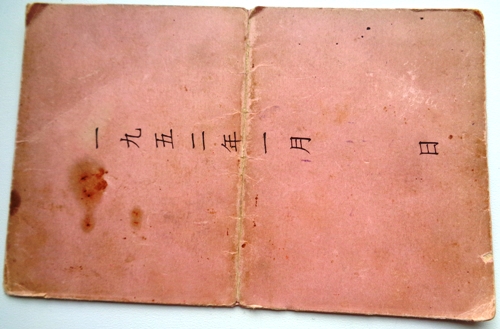 一九五二年一月 日